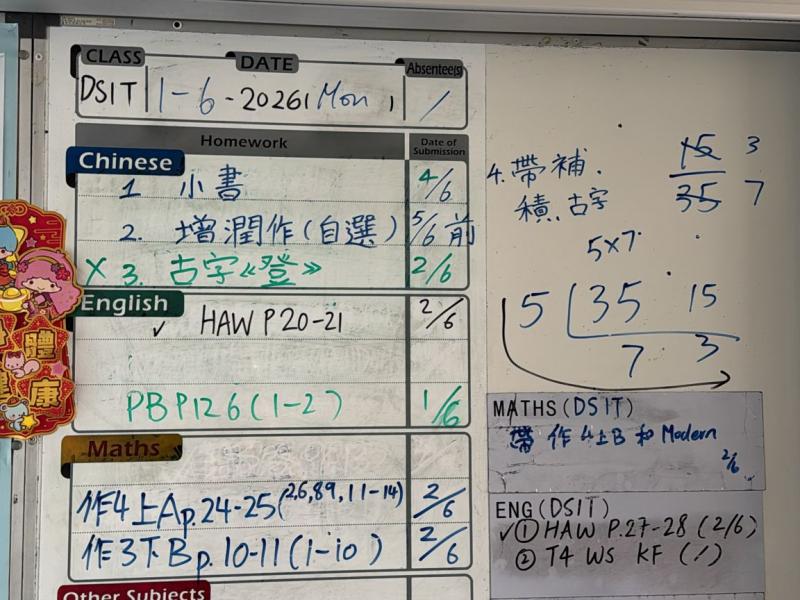 CLASS DATE Absentee(s)
DSIT 1-6-2026 Mon /
Homework Date of Submission
Chinese
1 小書 4/6
2. 增潤作(自選) 5/6前
X 3. 古字《登》 2/6
English
✓ HAW P20-21 2/6
PB P126(1-2) 1/6
Maths
作4上A p.24-25(2,6,89,11-14) 2/6
作3下B p.10-11(1-10) 2/6
Other Subjects
4. 帶補.
積.古字
15 3
35 7
5×7
5 35 15
7 3
MATHS(DSIT)
帶 作4上B 和 Modern
2/6
ENG(DSIT)
✓① HAW P.27-28 (2/6)
② T4 WS KF (/)
體
康